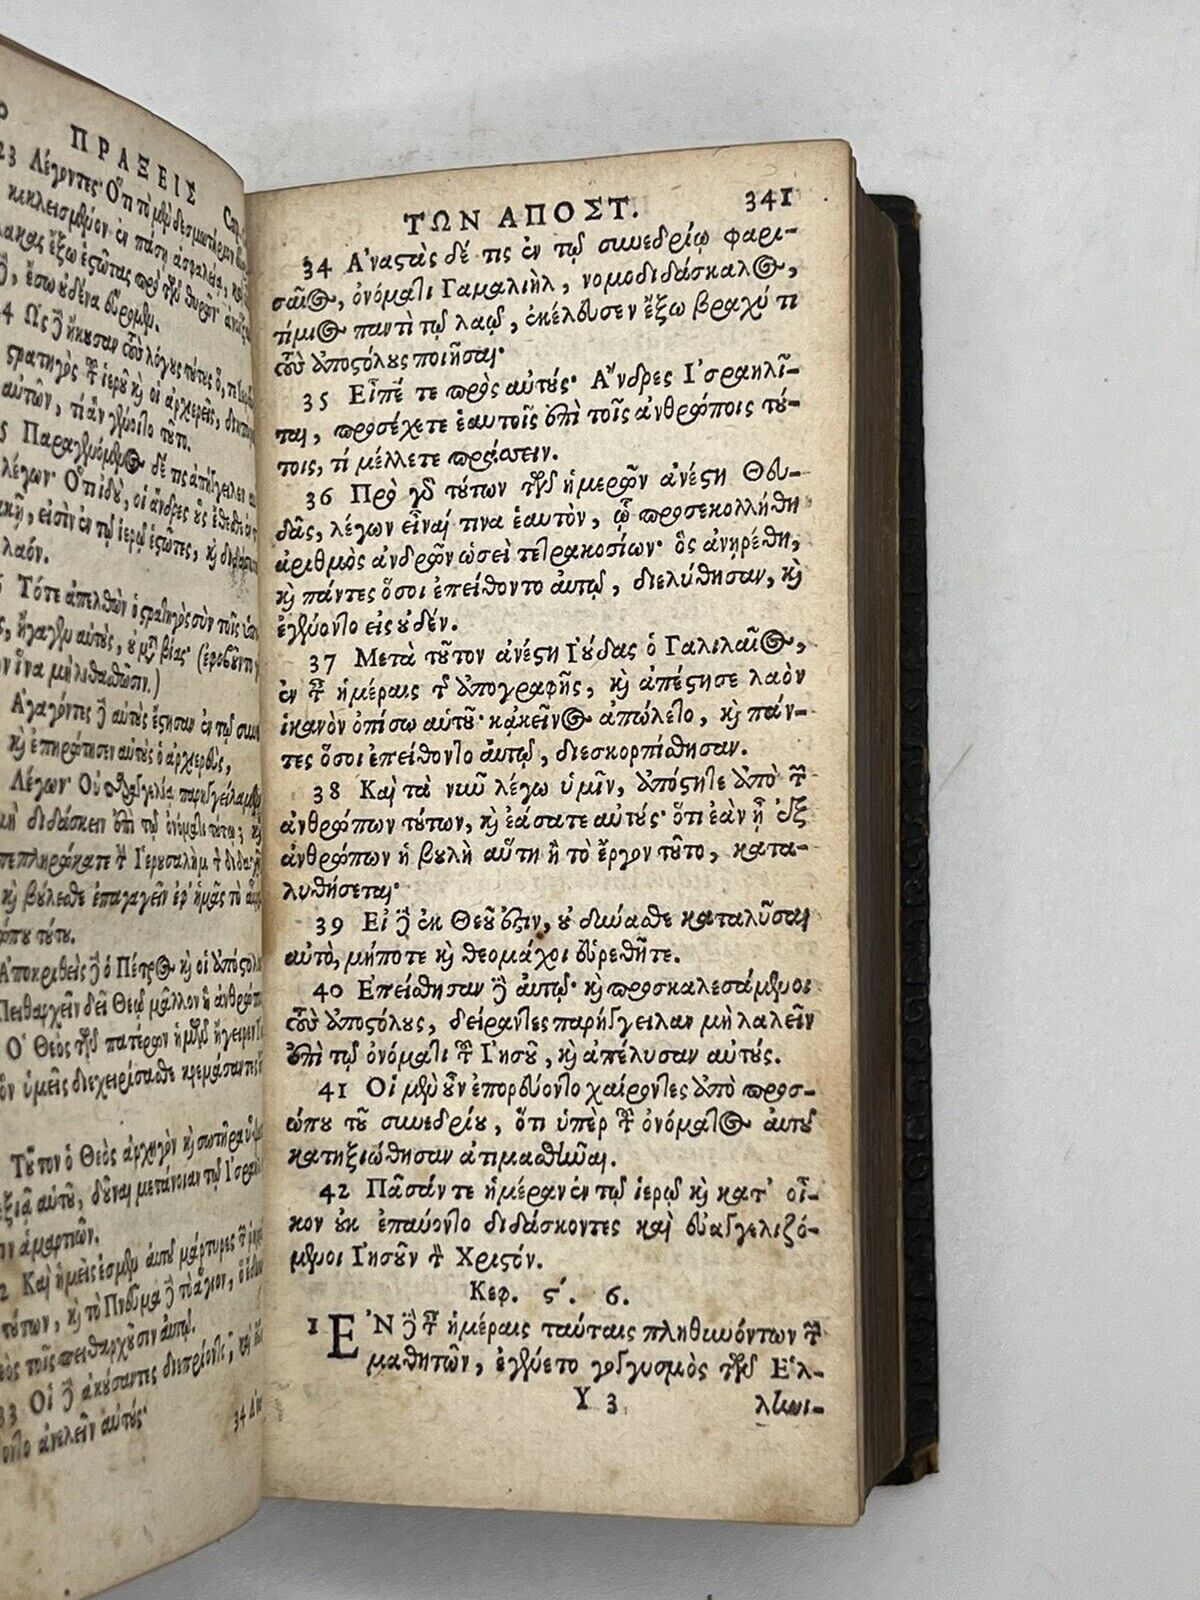 ΠΡΑΞΕΙΣ
23 Λέγοντες· Ὅτι τὸ μὲν δεσμωτήριον
κεκλεισμένον ἐν πάσῃ ἀσφαλείᾳ,
ἔξω ἑστῶτας πρὸ τῶν θυρῶν·
ἔσω οὐδένα εὕρομεν.
στρατηγὸς τοῦ ἱεροῦ καὶ οἱ ἀρχιερεῖς,
αὐτῶν, τί ἂν γένοιτο τοῦτο.
Παραγενόμενος δέ τις ἀπήγγειλεν
λέγων· Ὅτι ἰδοὺ, οἱ ἄνδρες οὓς ἔθεσθε ἐν
εἰσὶν ἐν τῷ ἱερῷ ἑστῶτες, καὶ
λαόν.
Τότε ἀπελθὼν ὁ στρατηγὸς σὺν τοῖς
ἤγαγεν αὐτοὺς, οὐ μετὰ βίας· (ἐφοβοῦντο
ἵνα μὴ λιθασθῶσιν.)
Ἀγαγόντες δὲ αὐτοὺς ἔστησαν ἐν τῷ
καὶ ἐπηρώτησεν αὐτοὺς ὁ ἀρχιερεὺς,
Λέγων· Οὐ παραγγελίᾳ παρηγγείλαμεν
μὴ διδάσκειν ἐπὶ τῷ ὀνόματι τούτῳ;
πεπληρώκατε τὴν Ἱερουσαλὴμ τῆς διδαχῆς
καὶ βούλεσθε ἐπαγαγεῖν ἐφ' ἡμᾶς τὸ
τούτου.
Ἀποκριθεὶς δὲ ὁ Πέτρος καὶ οἱ
Πειθαρχεῖν δεῖ Θεῷ μᾶλλον ἢ
Ὁ Θεὸς τῶν πατέρων ἡμῶν
ὑμεῖς διεχειρίσασθε κρεμάσαντες
Τοῦτον ὁ Θεὸς ἀρχηγὸν καὶ σωτῆρα
αὐτοῦ, δοῦναι μετάνοιαν τῷ
ἁμαρτιῶν.
Καὶ ἡμεῖς ἐσμεν αὐτοῦ μάρτυρες τῶν
τούτων, καὶ τὸ Πνεῦμα δὲ τὸ ἅγιον, ὃ
τοῖς πειθαρχοῦσιν αὐτῷ.
33 Οἱ δὲ ἀκούσαντες διεπρίοντο, καὶ
ἀνελεῖν αὐτούς·
ΤΩΝ ΑΠΟΣΤ. 341
34 Ἀναστὰς δέ τις ἐν τῷ συνεδρίῳ φαρι-
σαῖος, ὀνόματι Γαμαλιὴλ, νομοδιδάσκαλος,
τίμιος παντὶ τῷ λαῷ, ἐκέλευσεν ἔξω βραχύ τι
τοὺς ἀποστόλους ποιῆσαι·
35 Εἶπέ τε πρὸς αὐτούς· Ἄνδρες Ἰσραηλῖ-
ται, προσέχετε ἑαυτοῖς ἐπὶ τοῖς ἀνθρώποις τού-
τοις, τί μέλλετε πράσσειν.
36 Πρὸ γὰρ τούτων τῶν ἡμερῶν ἀνέστη Θευ-
δᾶς, λέγων εἶναί τινα ἑαυτὸν, ᾧ προσεκολλήθη
ἀριθμὸς ἀνδρῶν ὡσεὶ τετρακοσίων· ὃς ἀνῃρέθη,
καὶ πάντες ὅσοι ἐπείθοντο αὐτῷ, διελύθησαν, καὶ
ἐγένοντο εἰς οὐδέν.
37 Μετὰ τοῦτον ἀνέστη Ἰούδας ὁ Γαλιλαῖος,
ἐν ταῖς ἡμέραις τῆς ἀπογραφῆς, καὶ ἀπέστησε λαὸν
ἱκανὸν ὀπίσω αὑτοῦ· κἀκεῖνος ἀπώλετο, καὶ πάν-
τες ὅσοι ἐπείθοντο αὐτῷ, διεσκορπίσθησαν.
38 Καὶ τὰ νῦν λέγω ὑμῖν, ἀπόστητε ἀπὸ τῶν
ἀνθρώπων τούτων, καὶ ἐάσατε αὐτούς· ὅτι ἐὰν ᾖ ἐξ
ἀνθρώπων ἡ βουλὴ αὕτη ἢ τὸ ἔργον τοῦτο, κατα-
λυθήσεται·
39 Εἰ δὲ ἐκ Θεοῦ ἐστιν, οὐ δύνασθε καταλῦσαι
αὐτὸ, μήποτε καὶ θεομάχοι εὑρεθῆτε.
40 Ἐπείσθησαν δὲ αὐτῷ· καὶ προσκαλεσάμενοι
τοὺς ἀποστόλους, δείραντες παρήγγειλαν μὴ λαλεῖν
ἐπὶ τῷ ὀνόματι τοῦ Ἰησοῦ, καὶ ἀπέλυσαν αὐτούς.
41 Οἱ μὲν οὖν ἐπορεύοντο χαίροντες ἀπὸ προσ-
ώπου τοῦ συνεδρίου, ὅτι ὑπὲρ τοῦ ὀνόματος αὐτοῦ
κατηξιώθησαν ἀτιμασθῆναι.
42 Πᾶσάν τε ἡμέραν ἐν τῷ ἱερῷ καὶ κατ' οἶ-
κον οὐκ ἐπαύοντο διδάσκοντες καὶ εὐαγγελιζό-
μενοι Ἰησοῦν τὸν Χριστόν.
Κεφ. ϛʹ. 6.
1 ἘΝ δὲ ταῖς ἡμέραις ταύταις πληθυνόντων τῶν
μαθητῶν, ἐγένετο γογγυσμὸς τῶν Ἑλ-
Y 3 ληνι-